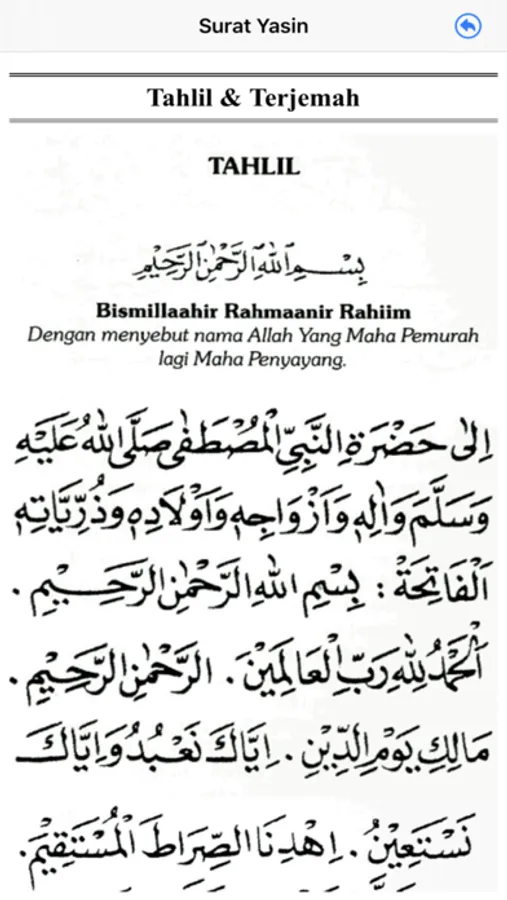 Surat Yasin
Tahlil & Terjemah
TAHLIL
بِسْمِ اللهِ الرَّحْمٰنِ الرَّحِيْمِ
Bismillaahir Rahmaanir Rahiim
Dengan menyebut nama Allah Yang Maha Pemurah
lagi Maha Penyayang.
اِلٰى حَضْرَةِ النَّبِيِّ الْمُصْطَفٰى صَلَّى اللهُ عَلَيْهِ
وَسَلَّمَ وَاٰلِهٖ وَاَزْوَاجِهٖ وَاَوْلَادِهٖ وَذُرِّيَّاتِهٖ
اَلْفَاتِحَةْ : بِسْمِ اللهِ الرَّحْمٰنِ الرَّحِيْمِ .
اَلْحَمْدُ لِلّٰهِ رَبِّ الْعَالَمِيْنَ . الرَّحْمٰنِ الرَّحِيْمِ .
مَالِكِ يَوْمِ الدِّيْنِ . اِيَّاكَ نَعْبُدُ وَاِيَّاكَ
نَسْتَعِيْنُ . اِهْدِنَا الصِّرَاطَ الْمُسْتَقِيْمَ .